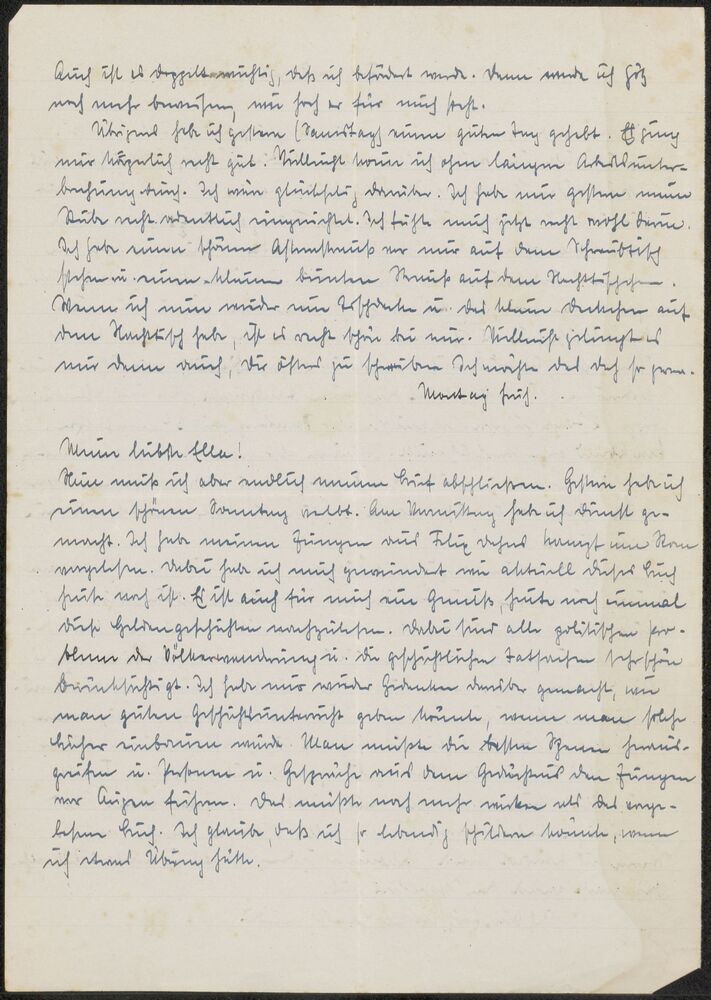 Auch ist es doppelt wichtig, daß ich befördert werde. Dann werde ich
noch mehr beweisen, wie hoch er für mich steht.
Übrigens habe ich gestern (Samstag) einen guten Tag gehabt. Es ging
mir körperlich recht gut. Vielleicht könnte ich ohne längere Arbeitsunter-
brechung durch. Ich wäre glücklich darüber. Ich habe mir gestern meine
Stube recht ordentlich eingerichtet. Ich fühle mich jetzt recht wohl darin.
Ich habe einen schönen Asternstrauß vor mir auf dem Schreibtisch
stehen u. einen kleinen bunten Strauß auf dem Nachttischchen.
Wenn ich nun wieder eine Tischdecke u. das kleine Deckchen auf
dem Nachttisch habe, ist es recht schön bei mir. Vielleicht gelingt es
mir dann auch, Dir öfters zu schreiben. Ich möchte das doch so gern.
Montag früh.
Meine liebste Ella!
Nun muß ich aber endlich meinen Brief abschließen. Gestern habe ich
einen schönen Sonntag verlebt. Am Vormittag habe ich Dienst ge-
macht. Ich habe meinen Jungen aus Felix Dahns Kampf um Rom
vorgelesen. Dabei habe ich mich gewundert wie aktuell dieses Buch
heute noch ist. Es ist auch für mich ein Genuß, heute noch einmal
diese Heldengeschichten nachzulesen. Dabei sind alle politischen Pro-
bleme der Völkerwanderung u. die geschichtlichen Tatsachen sehr schön
berücksichtigt. Ich habe mir wieder Gedanken darüber gemacht, wie
man guten Geschichtsunterricht geben könnte, wenn man solche
Bücher einbauen würde. Man müßte die besten Szenen heraus-
greifen u. Personen u. Gespräche aus dem Gedächtnis den Jungen
vor Augen führen. Das müßte noch mehr wirken als das vorge-
lesene Buch. Ich glaube, daß ich so lebendig schildern könnte, wenn
ich etwas Übung hätte.